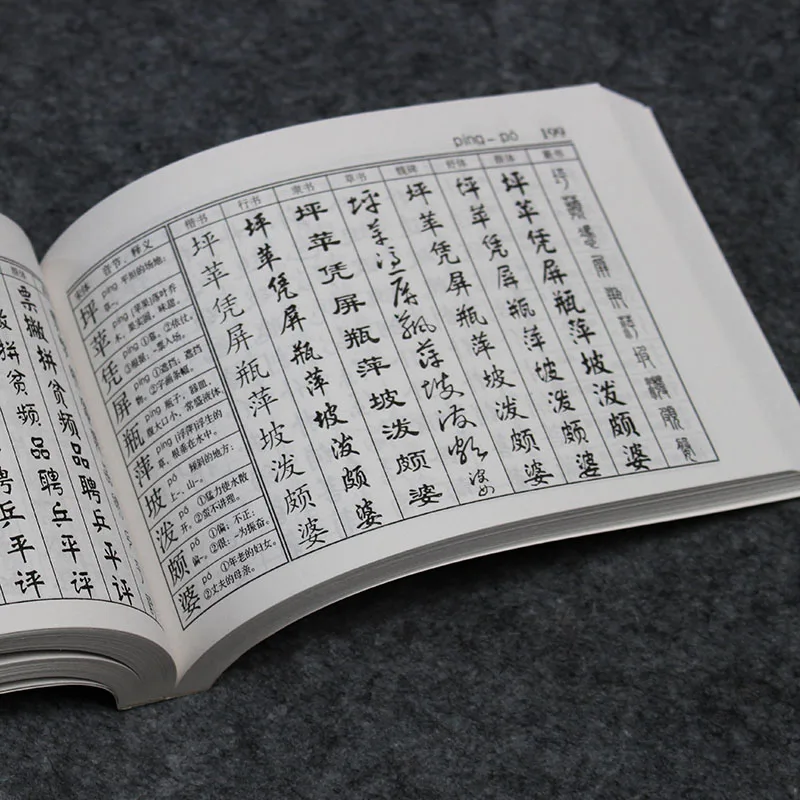 píng – pó 199
宋体 音节、释义 楷书 行书 隶书 草书 魏碑 舒体 篆书
坪 píng 平坦的场地:
草~。
坪 坪 坪 坪 坪 坪 坪 坪
苹 píng [苹果]落叶乔
木，果实圆，味甜。
苹 苹 苹 苹 苹 苹 苹
凭 píng ①靠。②依仗。
③根据。~票入场。
凭 凭 凭 凭 凭 凭 凭
屏 píng ①遮挡；遮挡
物。②字画条幅。
屏 屏 屏 屏 屏 屏 屏 屏
瓶 píng 瓶子，器皿，
腹大口小，常盛液体。
瓶 瓶 瓶 瓶 瓶 瓶 瓶
萍 píng [浮萍]浮生的
草，根垂在水中。
萍 萍 萍 萍 萍 萍 萍
坡 pō 倾斜的地方:
上~，山~。
坡 坡 坡 坡 坡 坡 坡
泼 pō ①猛力使水散
开。②蛮不讲理。
泼 泼 泼 泼 泼 泼 泼
颇 pō ①偏；不正:
偏~。②很：~为振奋。
颇 颇 颇 颇 颇 颇 颇
婆 pó ①年老的妇女。
②丈夫的母亲。
婆 婆 婆 婆 婆 婆 婆
票 撇 拼 贫 频 品 聘 乒 平 评